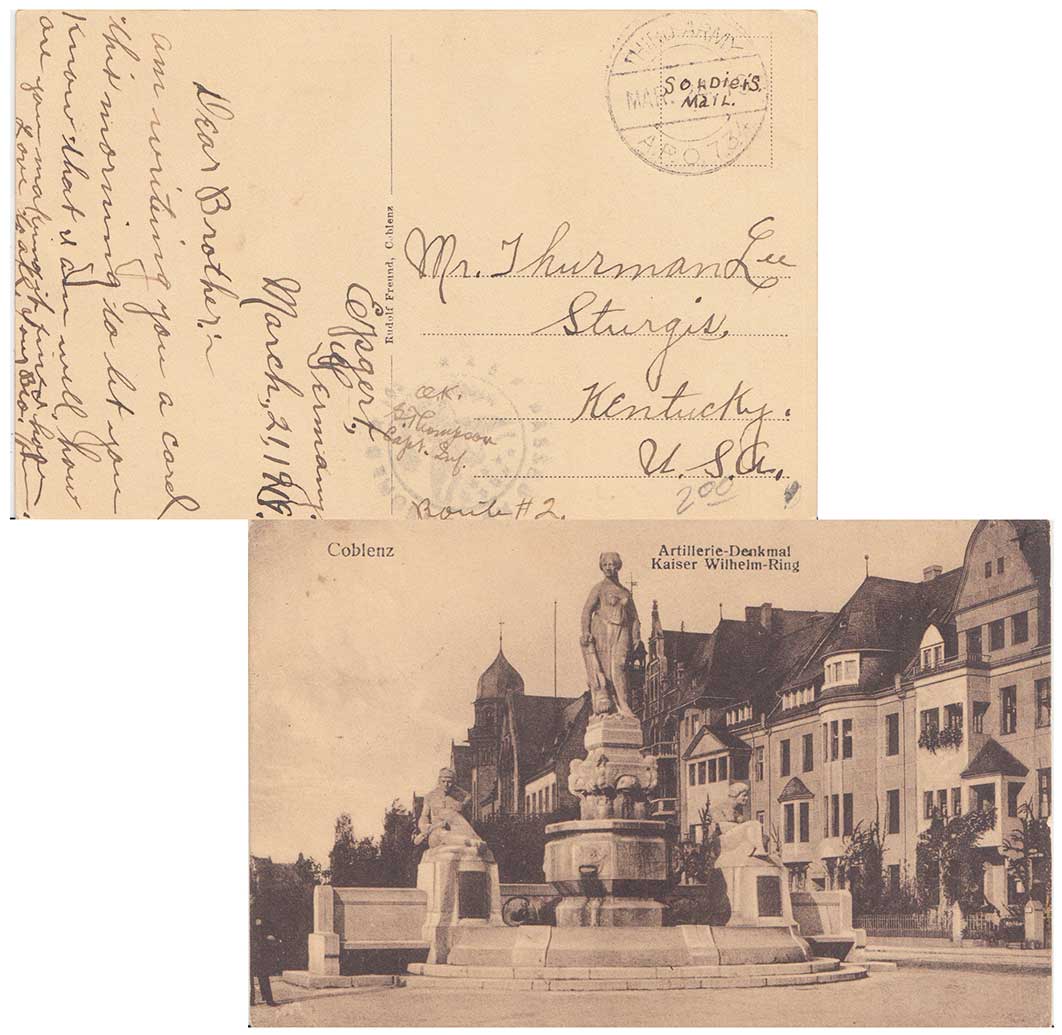 THIRD ARMY
MAR.
A.P.O. 734
SOLDIERS
MAIL.
Mr. Thurman Lee
Sturgis,
Kentucky.
U.S.A.
Route #2.
200
Rudolf Freund, Coblenz
OK.
Thompson
Capt. Inf.
PASSED
Epgert,
Germany.
March, 21, 1919.
Dear Brother:
am writing you a card
this morning to let you
know that I am well, how
are you making it fine I hope
Love to all, Your Bro.
Coblenz
Artillerie-Denkmal
Kaiser Wilhelm-Ring